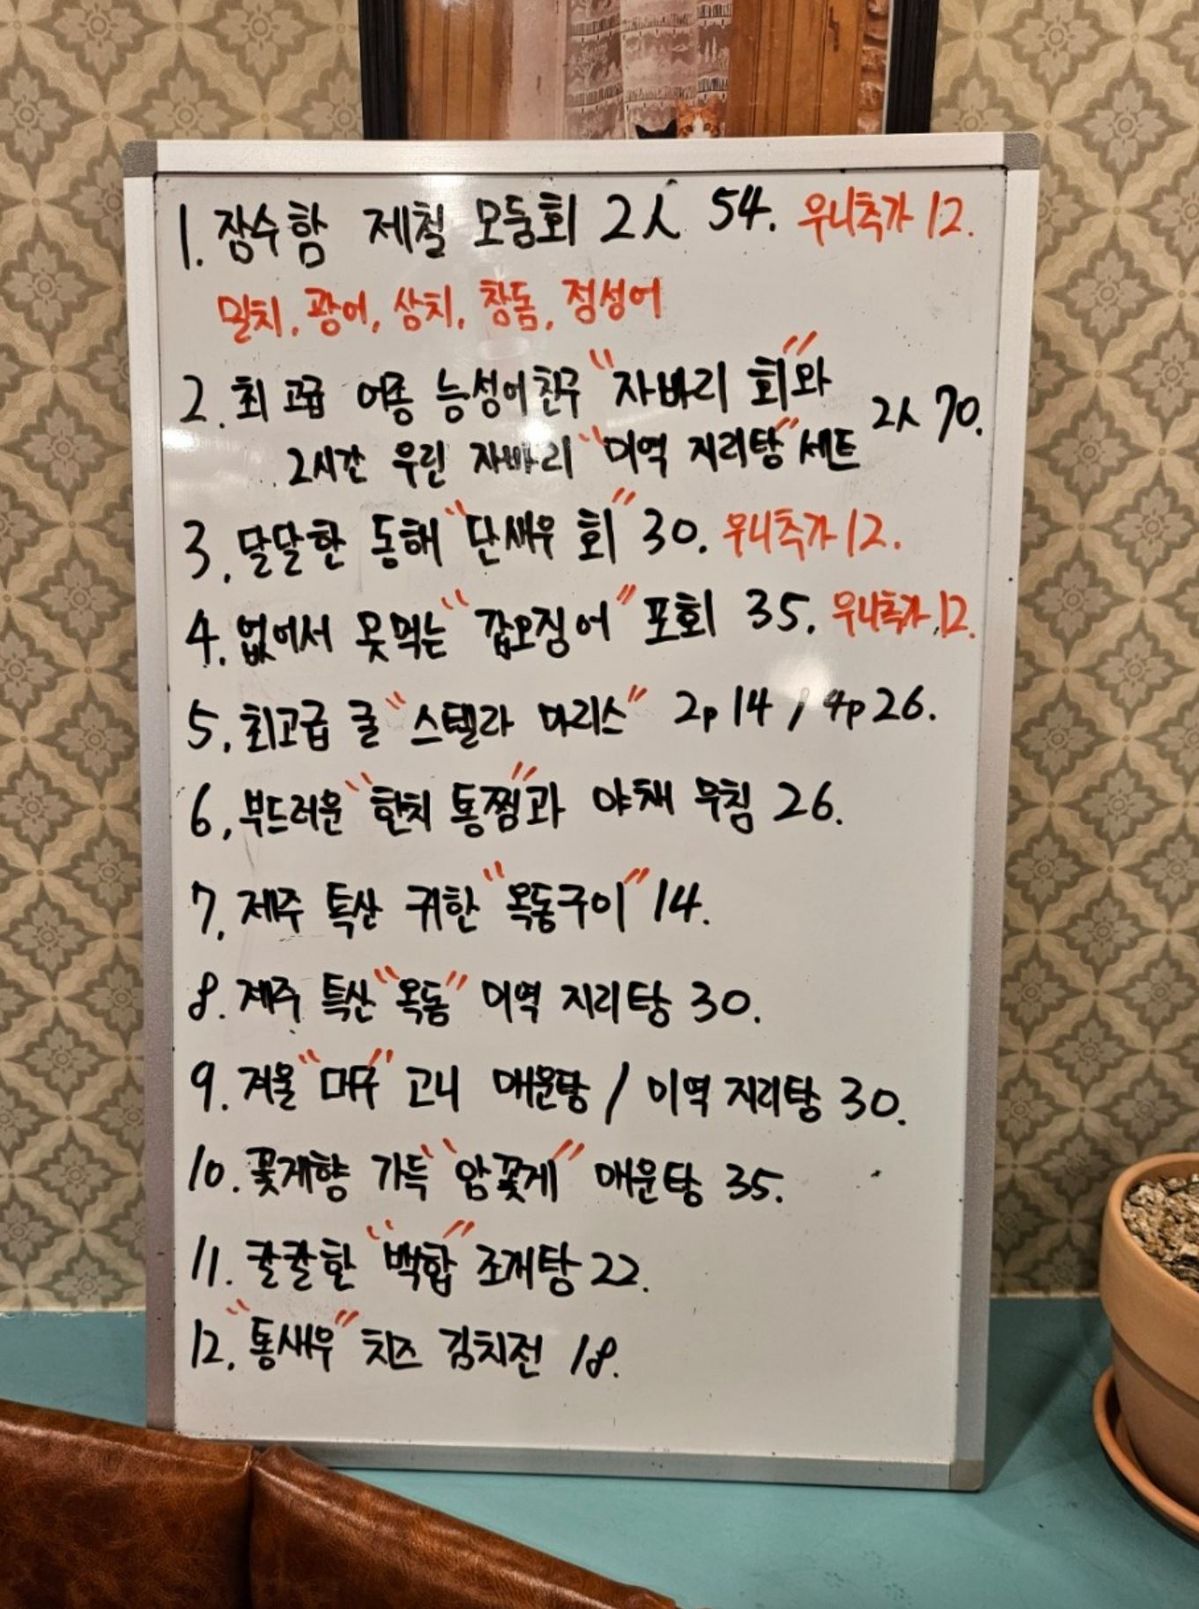 1. 잠수함 제철 모둠회 2人 54. 우니추가 12.
밀치, 광어, 삼치, 참돔, 점성어
2. 최고급 어종 능성어친구 "자바리 회"와
2시간 우린 자바리 "미역 지리탕" 세트 2人 70.
3. 달달한 동해 "단새우 회" 30. 우니추가 12.
4. 없어서 못먹는 "갑오징어" 포회 35. 우니추가 12.
5. 최고급 굴 "스텔라 마리스" 2p 14 / 4p 26.
6. 부드러운 "한치 통찜"과 야채 무침 26.
7. 제주 특산 귀한 "옥돔구이" 14.
8. 제주 특산 "옥돔" 미역 지리탕 30.
9. 겨울 "대구" 고니 매운탕 / 미역 지리탕 30.
10. 꽃게향 가득 "암꽃게" 매운탕 35.
11. 칼칼한 "백합" 조개탕 22.
12. "통새우" 치즈 김치전 18.